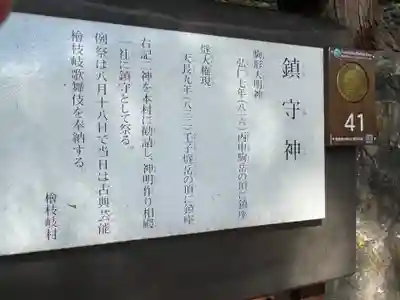 鎮守神
駒形大明神
弘仁七年(八一六)丙申駒岳の頂に鎮座
燧大権現
天長九年(八三二)壬子燧岳の頂に鎮座
右記二神を本村に勧請し、神明作り相殿
一社に鎮守として祭る。
例祭は八月十八日で当日は古典芸能
檜枝岐歌舞伎を奉納する
檜枝岐村
41